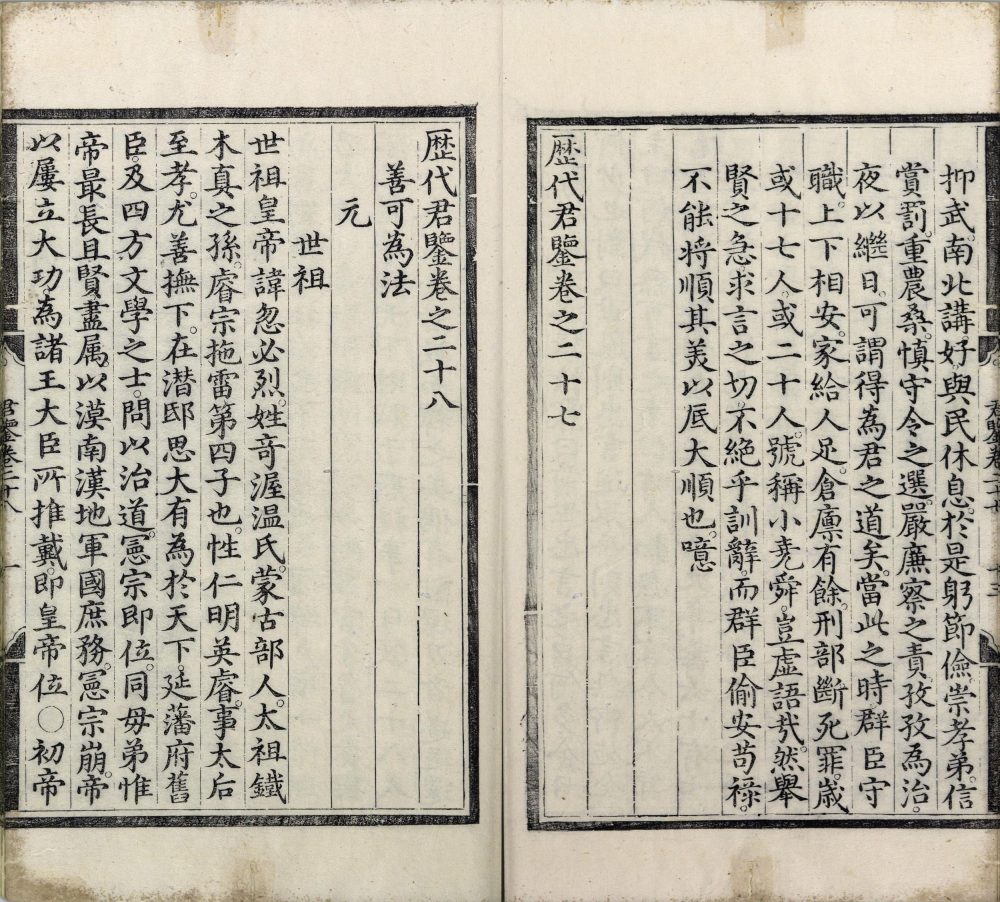 抑武南北講好與民休息於是躬節儉崇孝弟信
賞罰重農桑慎守令之選嚴廉察之責孜孜為治
夜以繼日可謂得為君之道矣當此之時群臣守
職上下相安家給人足倉廪有餘刑部斷死罪歲
或十七人或二十人號稱小堯舜豈虚語㢤然舉
賢之急求言之切不絶乎訓辭而群臣偷安苟禄
不能將順其美以底大順也噫
歴代君鑒卷之二十七
歴代君鑒卷之二十八
善可為法
元
世祖
世祖皇帝諱忽必烈姓奇渥温氏蒙古部人太祖鐵
木真之孫睿宗拖雷第四子也性仁明英睿事太后
至孝尤善撫下在潜邸思大有為於天下延藩府舊
臣及四方文學之士問以治道憲宗即位同母弟惟
帝最長且賢盡属以漠南漢地軍國庶務憲宗崩帝
以屢立大功為諸王大臣所推戴即皇帝位○初帝
君鑒卷二十八 一